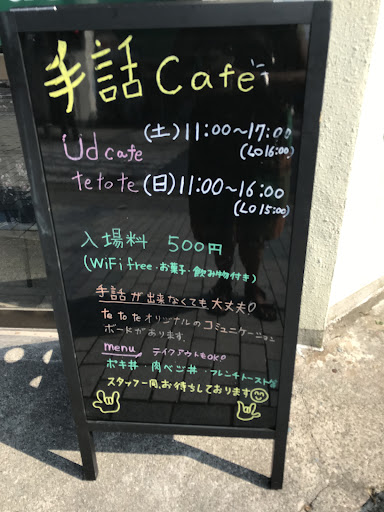 手話 Cafe
(土) 11:00～17:00
Ud cafe
(LO 16:00)
te to te (日) 11:00～16:00
(LO 15:00)
入場料 500円
(WiFi free・お菓子・飲み物付き)
手話が出来なくても大丈夫○
te to te オリジナルのコミュニケーション
ボードがあります。
menu テイクアウトもOK!
ポキ丼・肉ベジ丼・フレンチトースト
スタッフ一同、お待ちしております